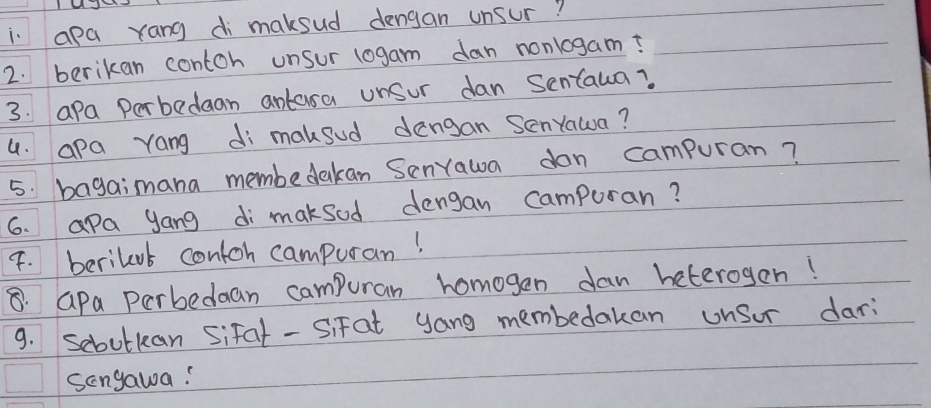 1. apa yang di maksud dengan unsur ?
2. berikan contoh unsur logam dan nonlogam !
3. apa perbedaan antara unsur dan Senyawa ?
4. apa yang di maksud dengan Senyawa ?
5. bagaimana membedakan Senyawa dan campuran ?
6. apa yang di maksud dengan campuran ?
7. berikut contoh campuran !
8. apa perbedaan campuran homogen dan heterogen !
9. Sebutkan Sifat - Sifat yang membedakan unsur dari
Sengawa !